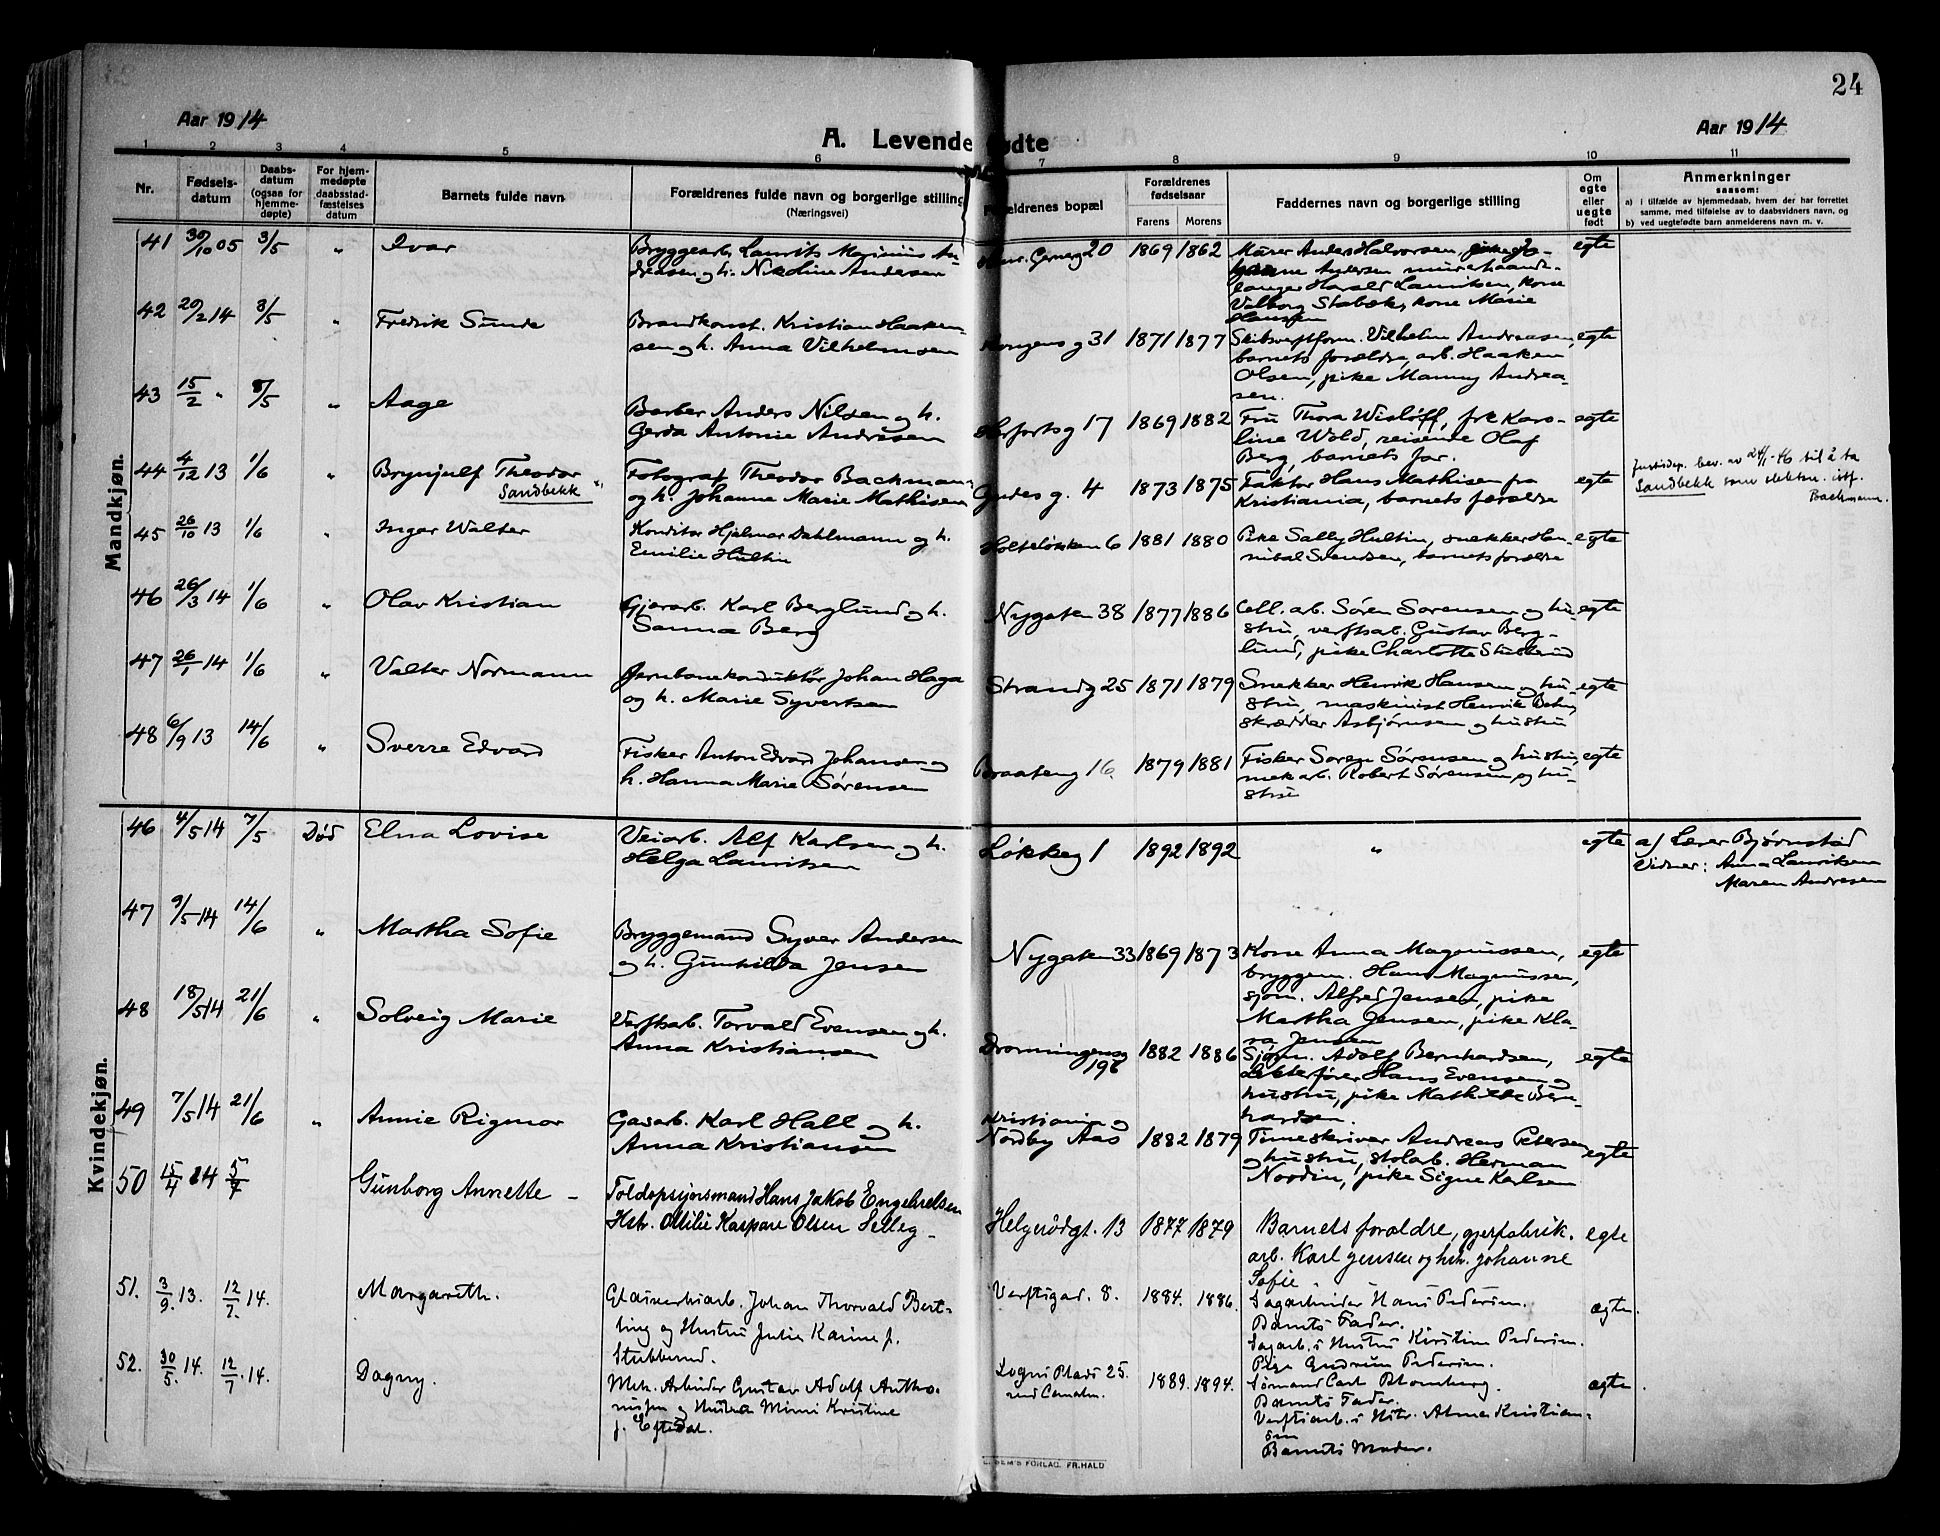 24
Aar 1914
A. Levende fødte
Aar 1914
1 2 3 4 5 6 7 8 9 10 11
Nr.
Fødsels-
datum
Daabs-
datum
(ogsaa for
hjemme-
døpte)
For hjem-
medøpte
daabsstad-
fæstelses
datum
Barnets fulde navn
Forældrenes fulde navn og borgerlige stilling
(Næringsvei)
Forældrenes bopæl
Forældrenes
fødselsaar
Farens Morens
Faddernes navn og borgerlige stilling
Om
egte
eller
uegte
født
Anmerkninger
saasom:
a) i tilfælde av hjemmedaab, hvem der har forrettet
samme, med tilføielse av to daabsvidners navn, og
b) ved uegtefødte barn anmelderens navn m. v.
Mandkjøn.
41 30/10 05 3/5 " Ivar
Bryggearb. Laurits Marinius An-
dreasen og h. Nikoline Andersen
20 1869 1862
Murer Anders Halvorsen, pike Jo-
hanne Andersen murerhaand-
langer Harald Lauritsen, kone
Valborg Stabæk, kone Marie
Hansen
egte
42 20/2 14 3/5 " Fredrik Sunde
Brandkonst. Kristian Haaken-
sen og h. Anna Vilhelmsen
Kongens g 31 1871 1877
Skibsværftform. Vilhelm Andreasen,
barnets forældre, arb. Haaken
Olsen, pike Manny Andrea-
sen.
egte
43 15/2 " 8/5 " Aage
Barber Anders Nilsen og h.
Gerda Antonie Andresen
Herfortsg 17 1869 1882
Fru Thora Wisløff, frk Karo-
line Wold, reisende Olaf
Berg, barnets far.
egte
44 4/12 13 1/6 " Brynjulf Theodor
Sandbekk
Fotograf Theodor Bachmann
og h. Johanne Marie Mathisen
Gudes g. 4 1873 1875
Faktor Hans Mathisen fra
Kristiania, barnets forældre
egte
Justisdep. bev. av 24/1-46 til å ta
Sandbekk som slektsn. istf.
Bachmann.
45 26/10 13 1/6 " Ingar Walter
Konditor Hjalmar Dahlmann og h.
Emilie Hultin
Holteløkken 6 1881 1880
Pike Sally Hultin, snekker Han-
nibal Svendsen, barnets forældre
egte
46 26/3 14 1/6 " Olav Kristian
Gjærarb. Karl Berglund og h.
Sanna Berg
Nygaten 38 1877 1886
Cell. arb. Søren Sørensen og hu-
stru, verftsarb. Gustav Berg-
lund, pike Charlotte
egte
47 26/1 14 1/6 " Valter Normann
Jernbanekonduktør Johan Haga
og h. Marie Syvertsen
Strandg 25 1871 1879
Snekker Henrik Hansen og hu-
stru, maskinist Henrik
skrædder Asbjørnsen og hustru
egte
48 6/9 13 14/6 " Sverre Edvard
Fisker Anton Edvard Johansen og
h. Hanna Marie Sørensen
Braateng 16. 1879 1881
Fisker Soren Sørensen og hustru,
mek arb. Robert Sørensen og hu-
stru
egte
Kvindekjøn.
46 4/5 14 7/5 Død Elna Lovise
Veiarb. Alf Karlsen og h.
Helga Lauritsen
Løkkeg 1 1892 1892
"
egte
a) Lærer Bjørnstad
Vidner: Anna Lauritsen
Maren Andresen
47 9/5 14 14/6 " Martha Sofie
Bryggemand Syver Andersen
og h. Gunhilda Jensen
Nygaten 33 1869 1873
Kone Anna Magnussen,
bryggem. Hans Magnussen,
sjøm. Alfred Jensen, pike
Martha Jensen, pike Kla-
ra Jensen
egte
48 18/5 14 21/6 " Solveig Marie
Verftsarb. Torvald Evensen og h.
Anna Kristiansen
Dronningensg
1882 1886
Sjøm. Adolf Bernhardsen,
Lekterfører Hans Evensen og
hustru, pike Mathilde Bern-
hardsen.
egte
49 7/5 14 21/6 " Annie Rigmor
Gasarb. Karl Hall og h.
Anna Kristiansen
Kristiania og
Nordby Aas 1882 1879
Timeskriver Andreas Petersen
og hustru, stolarb. Herman
Nordin, pike Signe Karlsen
egte
50 15/4 14 5/7 Gunborg Annette -
Toldopsynsmand Hans Jakob Engebretsen
Hstr. Ottilie Kaspare Olsen Selleg -
Helgerödgt. 13 1877 1879
Barnets forældre, gjærfabrik.
arb. Karl Jensen og hstr. Johanne
Sofie.
egte
51. 3/9. 13. 12/7. 14. Margareth.
Glasverksarb. Johan Thorvald Bert-
ling og Hustru Julie Karine f.
Stubberud.
Verftsgad. 8. 1884. 1886.
Sagarbeider Hans Pedersen.
Barnets Fader.
Sagarb.s Hustru Kirstine Pedersen.
Pige Gudrun Pedersen.
ægte.
52. 30/5. 14. 12/7. 14. Dagny.
Mek. Arbeider Gustav Adolf Antho-
nisen og Hustru Mimi Kristine
f. Eftedal.
Logns Plads 25.
1889. 1894.
Sømand Carl Blomberg.
Barnets Fader.
Verftsarb.s Hstr. Alma Kristian-
sen
Barnets Moder.
ægte.
FORLAG. FR.HALD